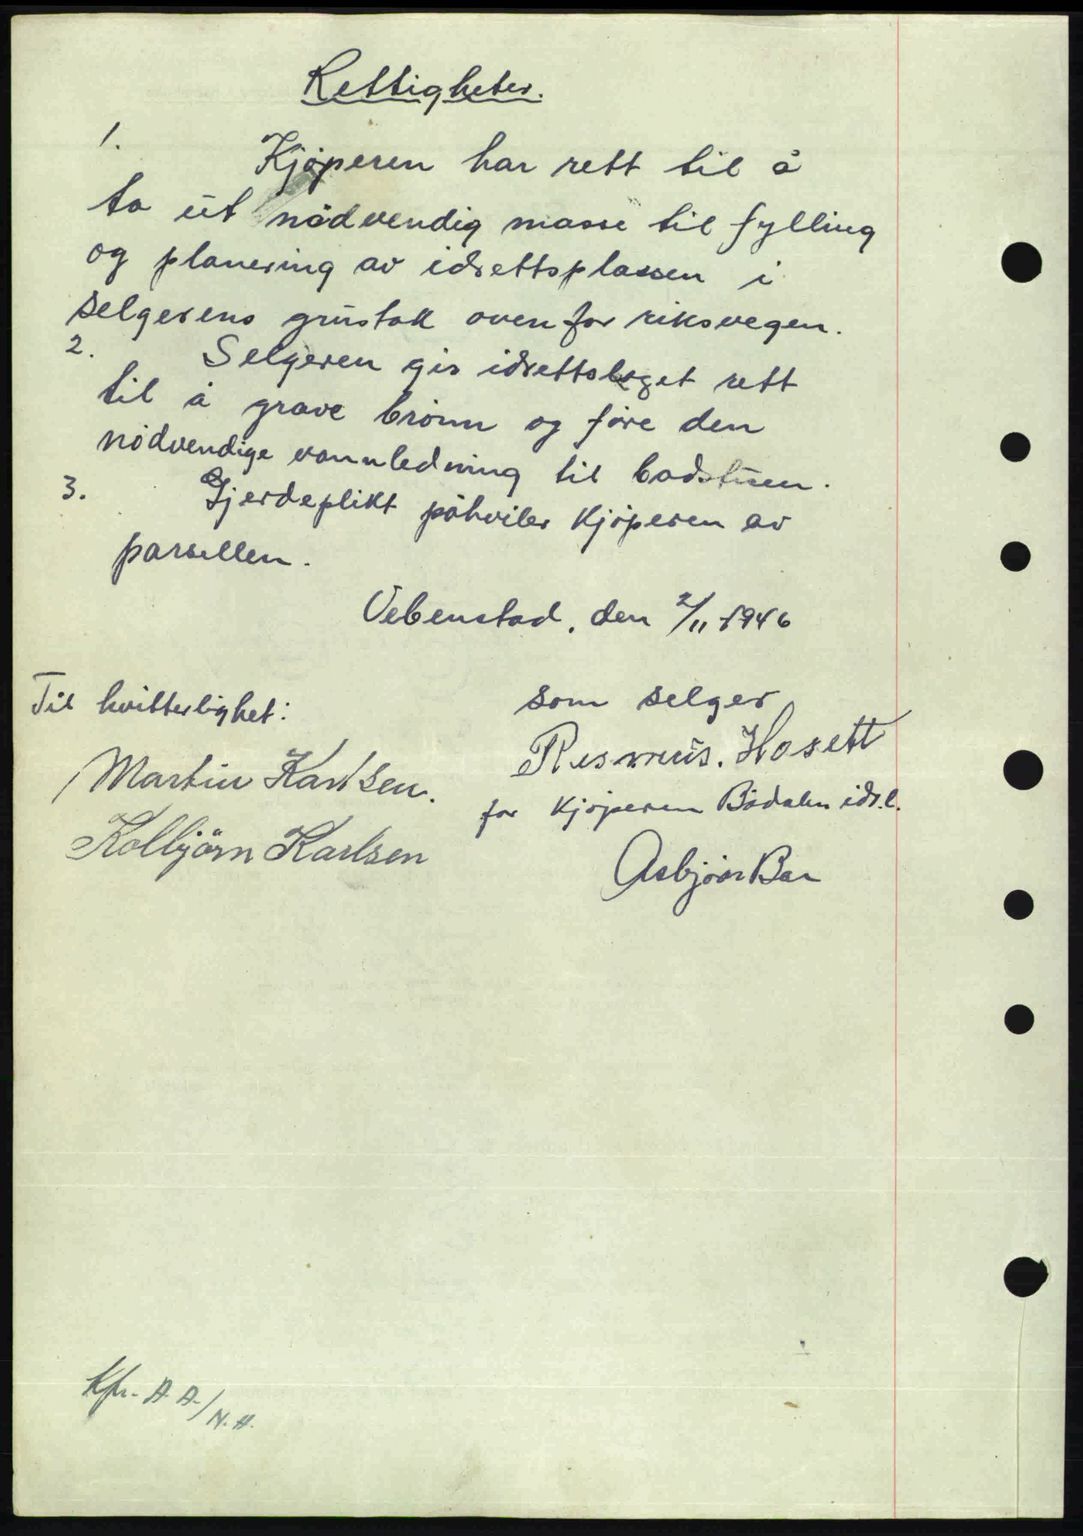 Rettigheter.
1.
Kjøperen har rett til å
ta ut nødvendig masse til fylling
og planering av idrettsplassen i
selgerens grustak ovenfor riksvegen.
2. Selgeren gir idrettslaget rett
til å grave brönn og före den
nödvendige vannledning til badstuen.
3. Gjerdeplikt påhviler kjöperen av
parsellen.
Vebenstad, den 2/11 1946
Til hvitterlighet:
som selger
Martin Karlsen.
Rasmus. Hosett
for kjöperen Bödalen idr.l.
Kolbjörn Karlsen
Asbjörn Bar
Kfr. A.A./N.H.